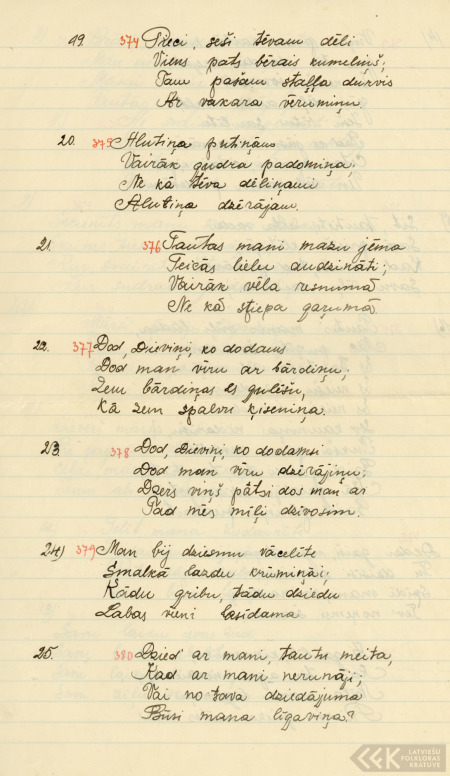 19. 374 Pieci, seši tēvam dēli
Viens pats bērais kumeliņš;
Tam pašam staļļa durvis
Ar vakara vēruminu.
20. 375 Alutiņa putiņām
Vairāk gudra padomiņa;
Ne kā tēva dēliņami
Alutiņa dzērājam.
21. 376 Tautas mani mazu jēma
Teicās lielu audzināti;
Vairāk vēla resnumā
Ne kā stiepa gaŗumā.
22. 377 Dod, Dieviņi, ko dodams
Dod man vīru ar bārdiņu;
Zem bārdiņas es gulēšu,
Kā zem spalvu ķiseniņa.
23. 378 Dod, Dieviņi, ko dodamsi
Dod man vīru dzērājiņu;
Dzers viņš pātsi dos man ar
Tad mēs mīļi dzivosim.
24) 379 Man bij dziesmu vācelīte
Smalkā lazdu krūmiņāi;
Kādu gribu, tādu dziedu
Labas vieni lasidama
25. 380 Dzied' ar mani, tautu meita,
Kad ar mani nerunāji;
Vai no tava dziedājuma
Būsi mana līgaviņa?
LATVIEŠU
FOLKLORAS
KRĀTUVE